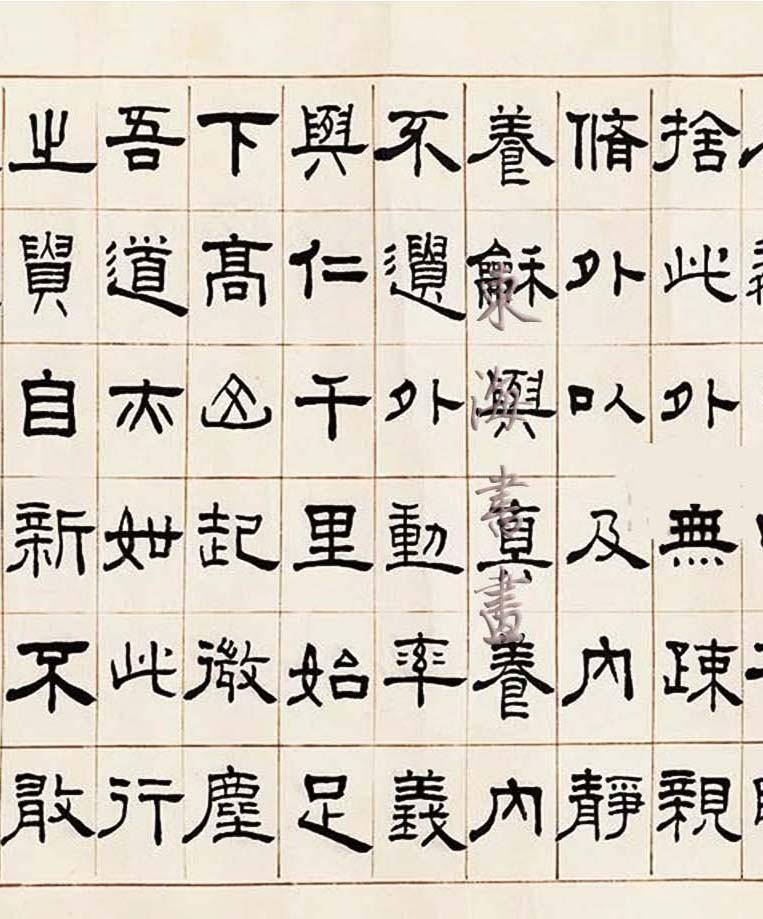 捨此外無疎親
脩外以及內靜
養龢與真養內
不遺外動率義
與仁千里始足
下高山起微塵
吾道亦如此行
之貴自新不敢
海書畫